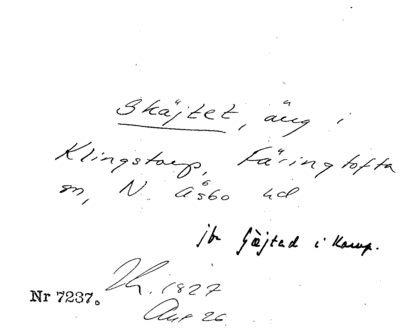 Skäjtet, äng i
Klingstorp, Färingtofta
sn, N. Åsbo hd
jfr Gäjstad i Karup.
Nr 7237.
1827